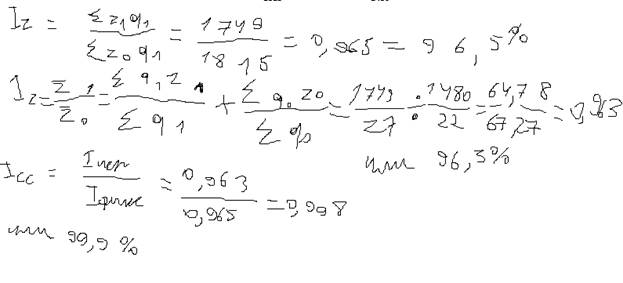 Iz = Σz₁q₁ / Σz₀q₁ = 1749 / 1815 = 0,965 = 96,5%
Iz = z̄₁ / z̄₀ = Σq₁z₁ / Σq₁ + Σq₀z₀ / Σq₀ = 1749 / 27 : 1480 / 22 = 64,78 / 67,27 = 0,963
или 96,3%
Icc = Iпер / Iфикс = 0,963 / 0,965 = 0,998
или 99,9%